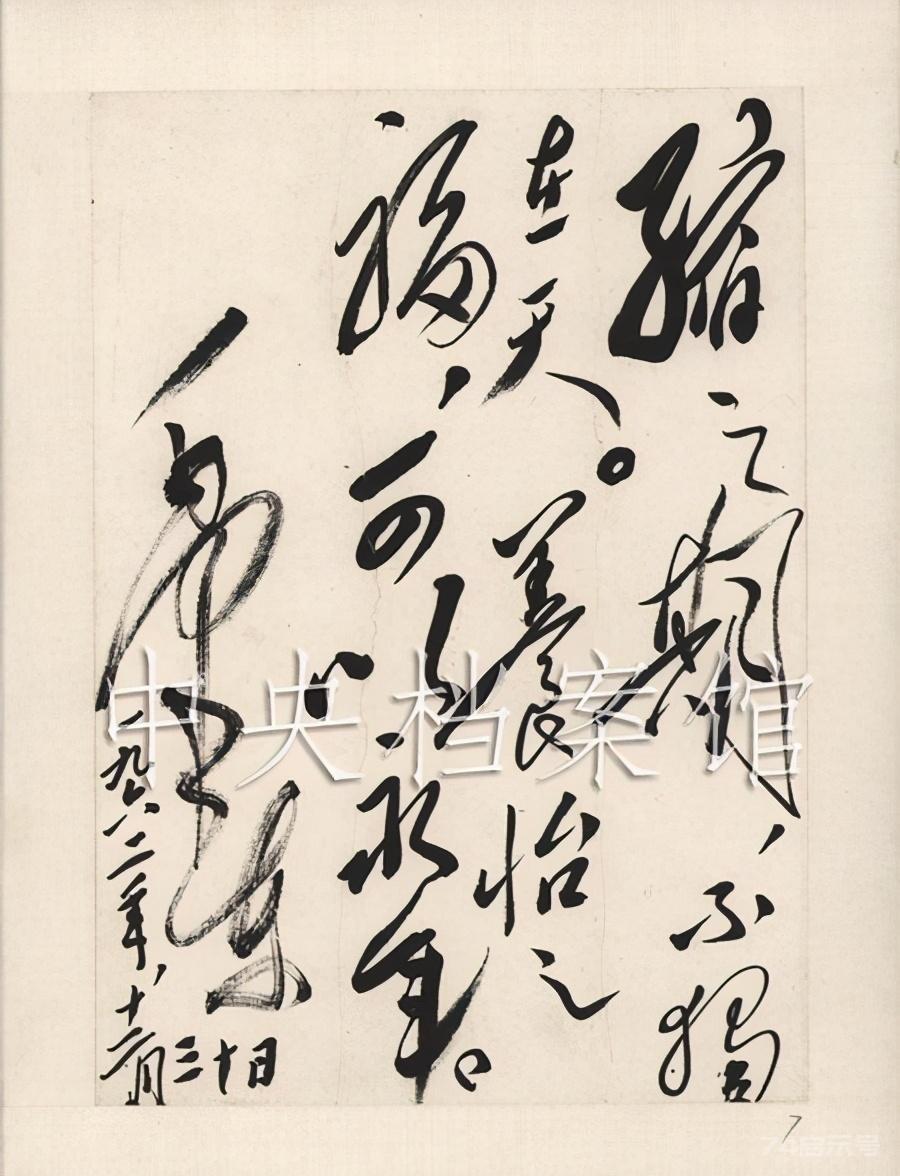 縮之期，不獨
在天。養怡之
福，可以永年。
毛澤東
一九六二年，十二月
三十日
中央档案馆
7
74启示号